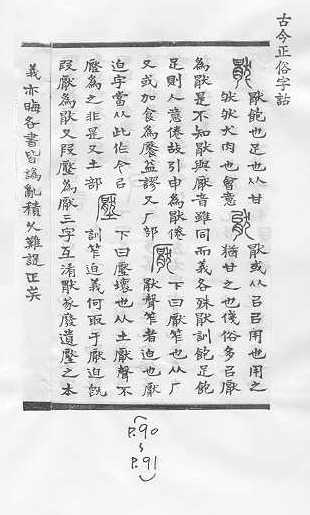 古今正俗字詁
猒 猒飽也足也从甘 猒 猒或从㠯㠯用也用之
肰肰犬肉也會意 猶甘之也俴俗多㠯厭
為猒是不知猒與厭音雖同而義各殊猒訓飽足飽
足則人意倦故引申為猒倦 厭 下曰厭笮也从厂
又或加食為饜益謬又厂部 猒聲笮者迫也厭
迫字當从此作今㠯 壓 下曰壓壞也从土厭聲不
壓為之非是又土部 訓笮迫義何取于厭迫既
叚厭為猒又叚壓為厭三字互淆猒篆廢遺壓之本
義亦晦各書皆譌亂積久難設正矣
P.90
~
P.91